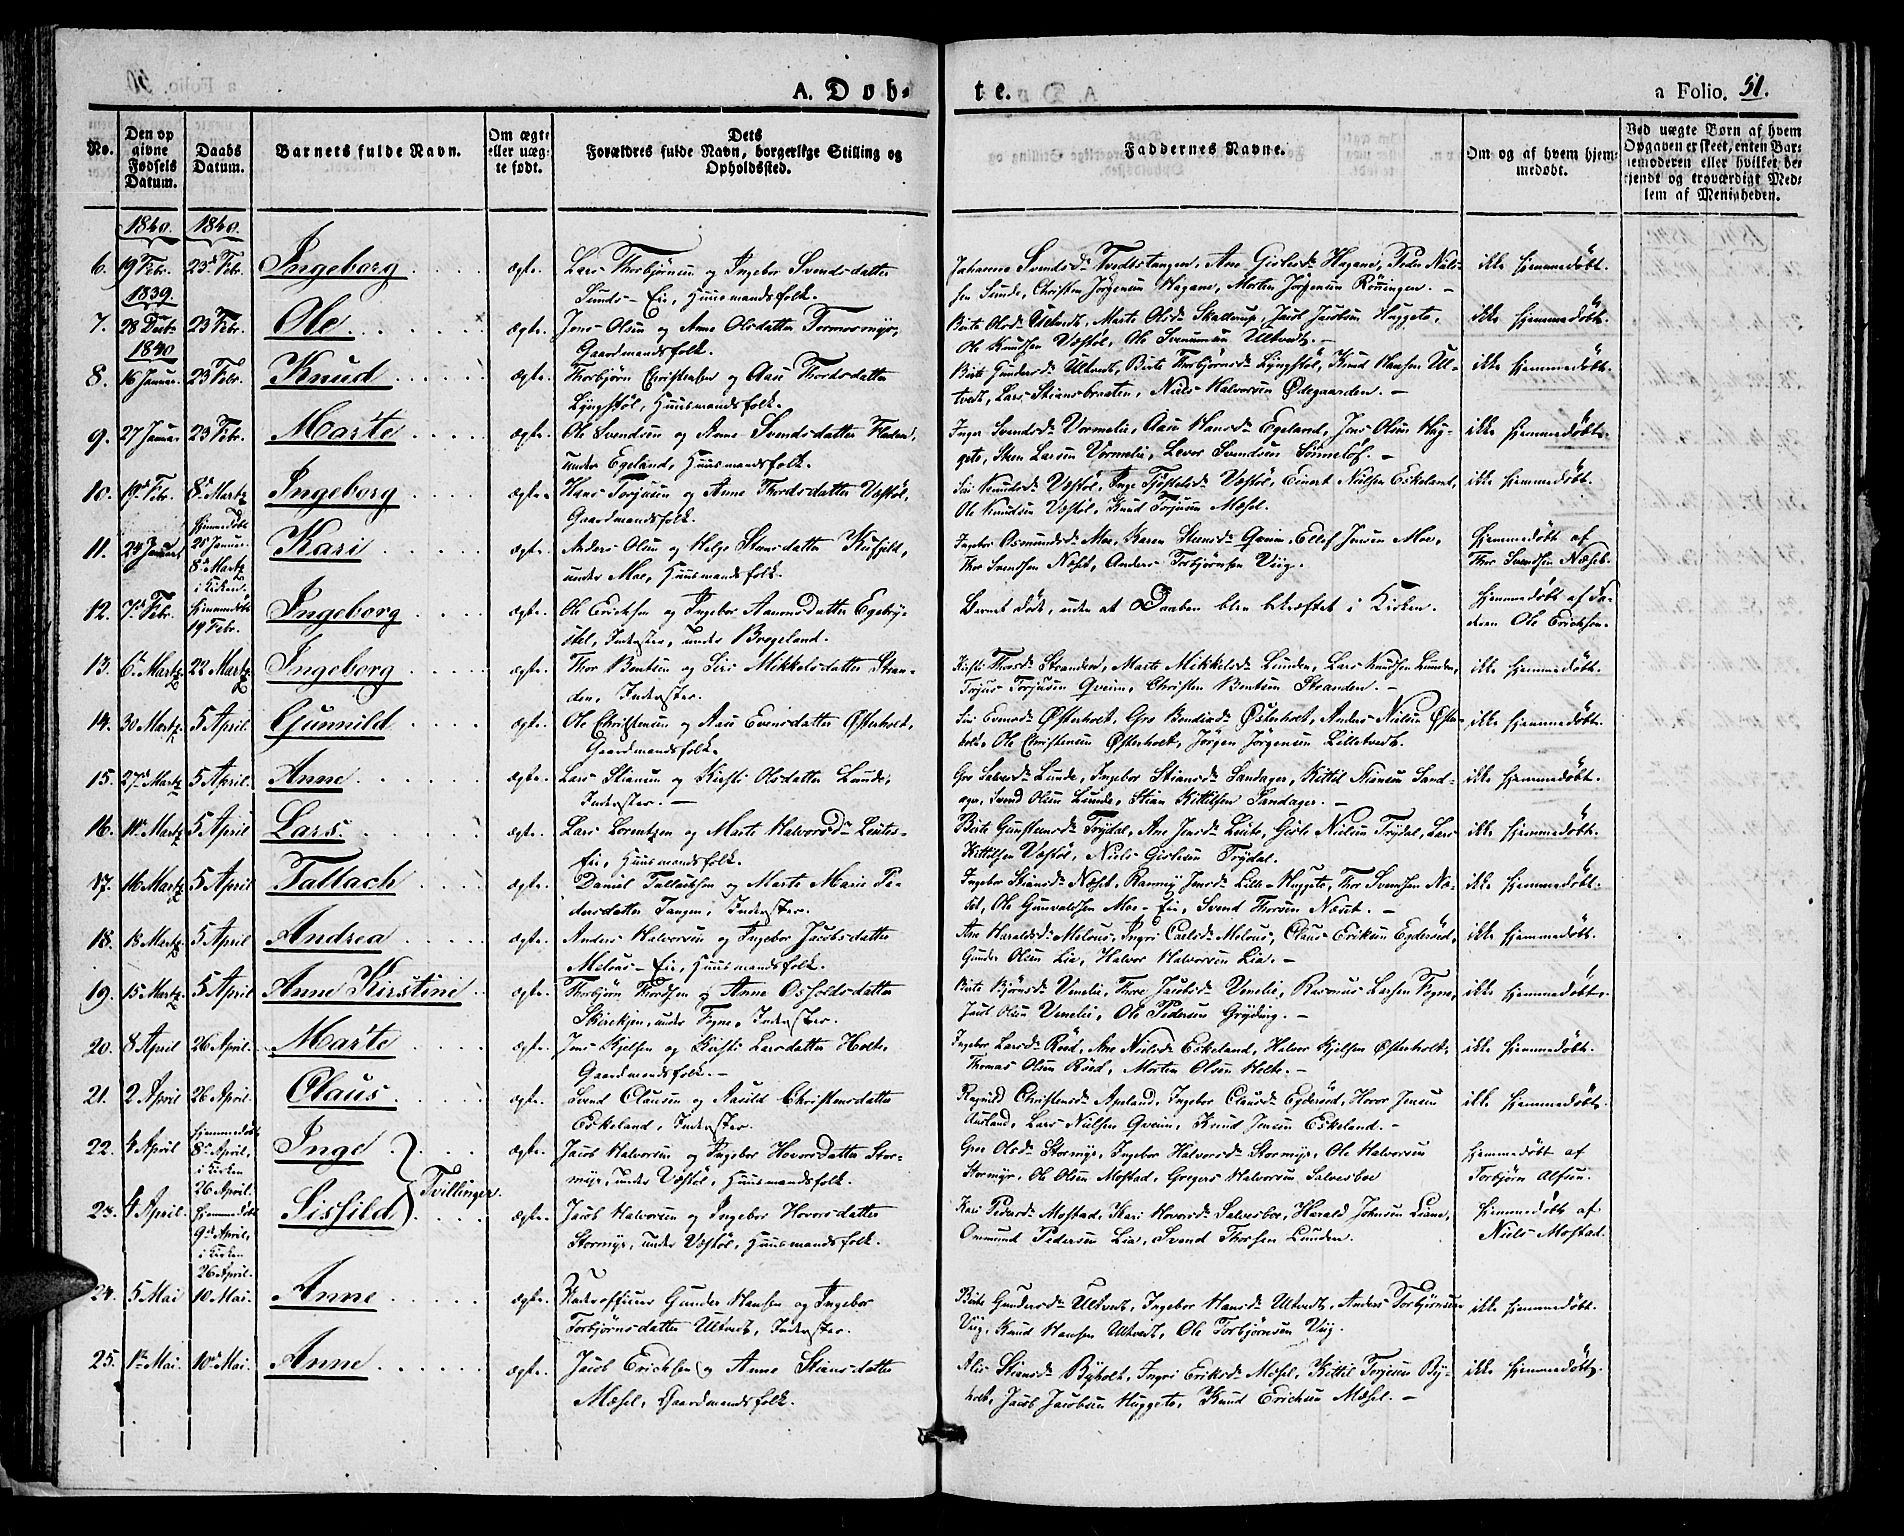 A. Døb-
te.
a Folio. 51.
No.
Den op
givne
Fødsels
Datum.
Daabs
Datum.
Barnets fulde Navn.
Om ægte
eller uæg-
te født.
Dets
Forældres fulde Navn, borgerlige Stilling og
Opholdssted.
Faddernes Navne.
Om og af hvem hjem-
medøbt.
Ved uægte Børn af hvem
Opgaven er skeet, enten Bar-
nemoderen eller hvilket be-
kjendt og troværdigt Med-
lem af Menigheden.
1840. 1840.
6. 19 Febr. 23d Febr. Ingeborg ægte. Lars Thorbjørnsen og Ingebor Svendsdatter
Sunds-Eie, Huusmandsfolk.
Johanne Svendsdr Tvedtstangen, Ane Gislesdr Hagane, Peder Niel-
sen Sunde, Christen Jørgensen Hagane, Morten Jørgensen Rønningen. -
ikke hjemmedøbt.
1839
7. 28 Decbr. 23 Febr. Ole ægte. Jens Olsen og Anne Olsdatter Tormosmyr,
Gaardmandsfolk.
Berte Olsdr Ulltvedt, Marte Olsdr Skatterup, Jacob Jacobsen Huggete,
Ole Knudsen Væstøl, Ole Svenumsen Ulltvedt. -
ikke hjemmedøbt.
1840
8. 16 Januar. 23 Febr. Knud ægte. Thorbjørn Christensen og Aase Thordsdatter
Lyngstøl, Huusmandsfolk.
Berte Gundersdr Ulltvedt, Berte Thorbjørnsdr Lyngstøl, Knud Hansen Ul-
tvedt, Lars Stiansbraaten, Niels Halvorsen Ødegaarden. -
ikke hjemmedøbt.
9. 27 Januar. 23 Febr. Marte ægte. Ole Svendsen og Anne Svendsdatter Fladen,
under Egeland, Huusmandsfolk.
Inger Svendsdr Vormelie, Aase Hansdr Egeland, Jens Olsen Hug-
gete, Steen Larsen Vormelie, Levor Svendsen Sønneløs. -
ikke hjemmedøbt.
10. 19d Febr. 8d Martz Ingeborg ægte. Hans Torjusen og Anne Thordsdatter Væstøl,
Gaardmandsfolk.
Siri Knudsdr Væstøl, Inge Tjøstelsdr Væstøl, Einert Nielsen Eskeland,
Ole Knudsen Væstøl, Knud Torjusen Mæsel.
ikke hjemmedøbt.
11. 24 Januar. hjemmedøbt
25 Januar.
8de Martz
i Kirken. Kari ægte. Anders Olsen og Helge Steensdatter Kufjeld,
under Moe, Huusmandsfolk.
Ingebor Osmundsdr Moe, Karen Steensdr Qveim, Ellef Jensen Moe,
Thor Svendsen Næset, Anders Torbjørnsen Viig.
Hjemmedøbt af
Thor Svendsen Næset.
12. 7d Febr. hjemmedøbt
19 Febr. Ingeborg ægte. Ole Ericksen og Ingebor Aanonsdatter Egeby-
støl, Inderster, under Brøgeland.
Barnet døde, uden at Daaben blev bekræftet i Kirken.
hjemmedøbt af Fa-
deren Ole Ericksen.
13. 6d Martz 22 Martz Ingeborg ægte. Thor Bentsen og Siri Mikkelsdatter Stran-
den, Inderster.
Kirsti Thorsdr Stranden, Marte Mikkelsdr Lunden, Lars Knudsen Lunden,
Torjus Torjusen Qveim, Christen Bentsen Stranden. -
ikke hjemmedøbt.
14. 30 Martz 5 April Gunnild ægte. Ole Christensen og Aase Evensdatter Østerholt,
Gaardmandsfolk.
Siri Evensdr Østerholt, Gro Bendixdr Østerholt, Anders Nielsen Øster-
holt, Ole Christensen Østerholt, Jørgen Jørgensen Lilletvedt.
ikke hjemmedøbt.
15. 27d Martz 5 April. Anne ægte. Lars Stiansen og Kirsti Olsdatter Lunde,
Inderster. -
Gro Halvorsdr Lunde, Ingebor Stiansdr Sandager, Kittil Stiansen Sand-
ager, Svend Olsen Lunde, Stian Kittilsen Sandager. -
ikke hjemmedøbt.
16. 11d Martz 5 April Lars ægte. Lars Lorentzen og Marte Halvorsdr Leutes-
Eie, Huusmandsfolk.
Berte Gunsteensdr Trydal, Ane Jensdr Leute, Gisle Nielsen Trydal, Lars
Kittilsen Væstøl, Niels Gislesen Trydal.
ikke hjemmedøbt.
17. 16 Martz 5 April Tallach ægte. Daniel Tallacksen og Marte Marie Pe-
dersdatter Tangen, Inderster.
Ingebor Stiansdr Næset, Ranmy Jensdr Lille-Huggete, Thor Svendsen Næ-
set, Ole Gunvaldsen Moe-Eie, Svend Thorsen Næset. -
ikke hjemmedøbt.
18. 13 Martz 5 April Andrea ægte. Anders Halvorsen og Ingebor Jacobsdatter
Melaas-Eie, Huusmandsfolk.
Ane Haraldsdr Melaas, Ingri Carlsdr Melaas, Claus Eriksen Egdersød,
Gunder Olsen Lia, Halvor Halvorsen Lia. -
ikke hjemmedøbt.
19. 15 Martz 5 April Anne Kirstine ægte. Thorbjørn Thordsen og Anne Osfoldsdatter
Skirekjen, under Fogne, Inderster.
Berte Bjørnsdr Venelie, Thore Jacobsdr Venelie, Rasmus Larsen Fogne,
Jacob Olsen Venelie, Ole Pedersen Gryting. -
ikke hjemmedøbt.
20. 8 April 26 April. Marte ægte. Jens Kjelsen og Kirsti Larsdatter Holte,
Gaardmandsfolk. -
Ingebor Larsdr Røed, Ane Nielsdr Eskeland, Halvor Kjelsen Østerholt,
Thomas Olsen Røed, Morten Olsen Holte. -
ikke hjemmedøbt.
21. 2 April 26 April. Claus ægte. Svend Clausen og Aasild Christensdatter
Eskeland, Inderster.
Ragnild Christensdr Apeland, Ingebor Clausdr Egdersød, Hovor Jensen
Ausland, Lars Nielsen Qveim, Knud Jensen Eskeland. -
ikke hjemmedøbt.
22. 4 April hjemmedøbt
8d April,
i Kirken
26 April. Inge ægte. Jacob Halvorsen og Ingebor Hovorsdatter Stor-
myr, under Væstøl, Huusmandsfolk.
Gree Olsdr Stormyr, Ingebor Halvorsdr Stormyr, Ole Halvorsen
Stormyr, Ole Olsen Mostad, Gregers Halvorsen Salvesboe
hjemmedøbt af
Torbjørn Alfsen.
Tvillinger
23. 4 April. hjemmedøbt
9d April,
i Kirken
26 April. Sissild ægte. Jacob Halvorsen og Ingebor Hovorsdatter
Stormyr, under Væstøl, Huusmandsfolk.
Kari Pedersdr Mostad, Kari Hovorsdr Salvesboe, Harald Johnsen Liane,
Ommund Pedersen Lia, Svend Thorsen Lunden.
Hjemmedøbt af
Niels Mostad.
24. 5 Mai 10 Mai. Anne ægte. Underofficeer Gunder Hansen og Ingebor
Torbjørnsdatter Ulltvedt, Inderster.
Berte Gundersdr Ulltvedt, Ingebor Hansdr Ulltvedt, Anders Torbjørnsen
Viig, Knud Hansen Ulltvedt, Ole Torbjørnsen Viig.
ikke hjemmedøbt.
25. 1d Mai. 10d Mai. Anne ægte. Jacob Ericksen og Anne Stiansdatter
Mæsel, Gaardmandsfolk.
Alis Stiansdr Byholt, Ingri Eriksdr Mæsel, Kittil Torjusen By-
holt, Jacob Jacobsen Huggete, Knud Ericksen Mæsel. -
ikke hjemmedøbt.